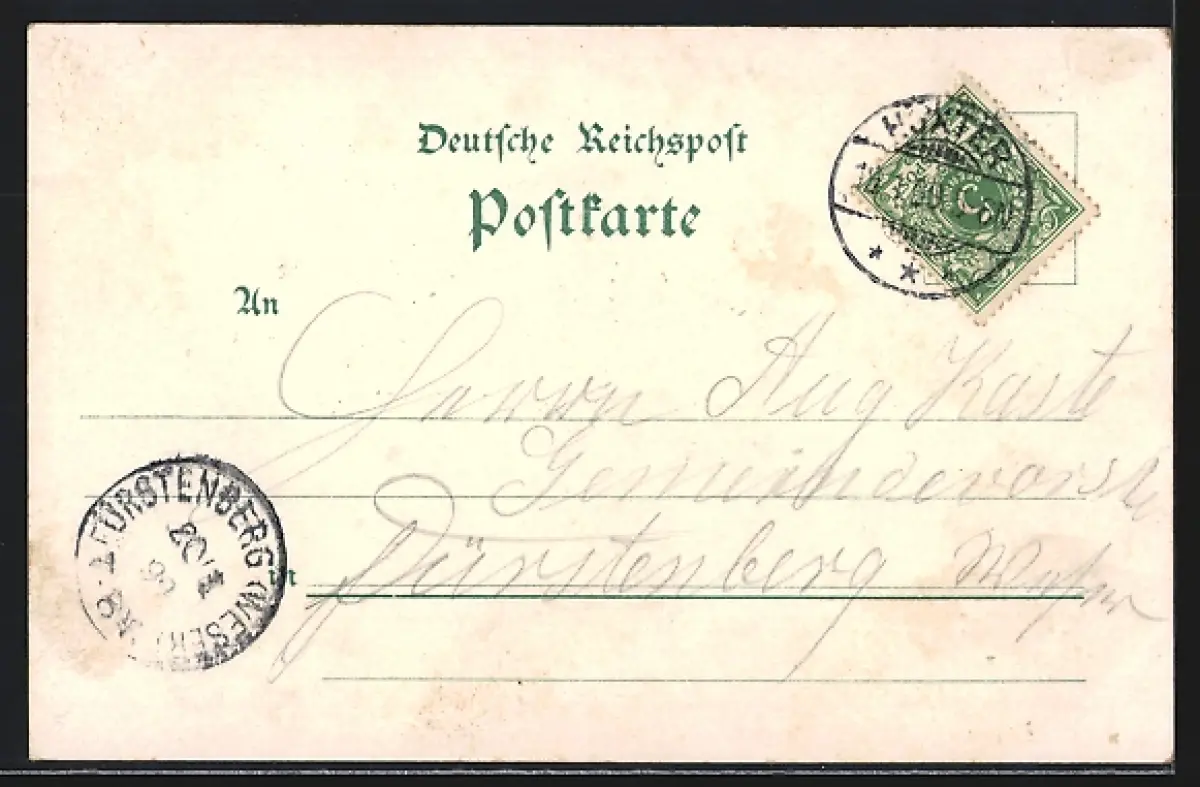 Deutsche Reichspost
Postkarte
HÖXTER
An
Herrn Aug Kaste
Gemeindevorst
FÜRSTENBERG (WESER)
Fürstenberg Weser